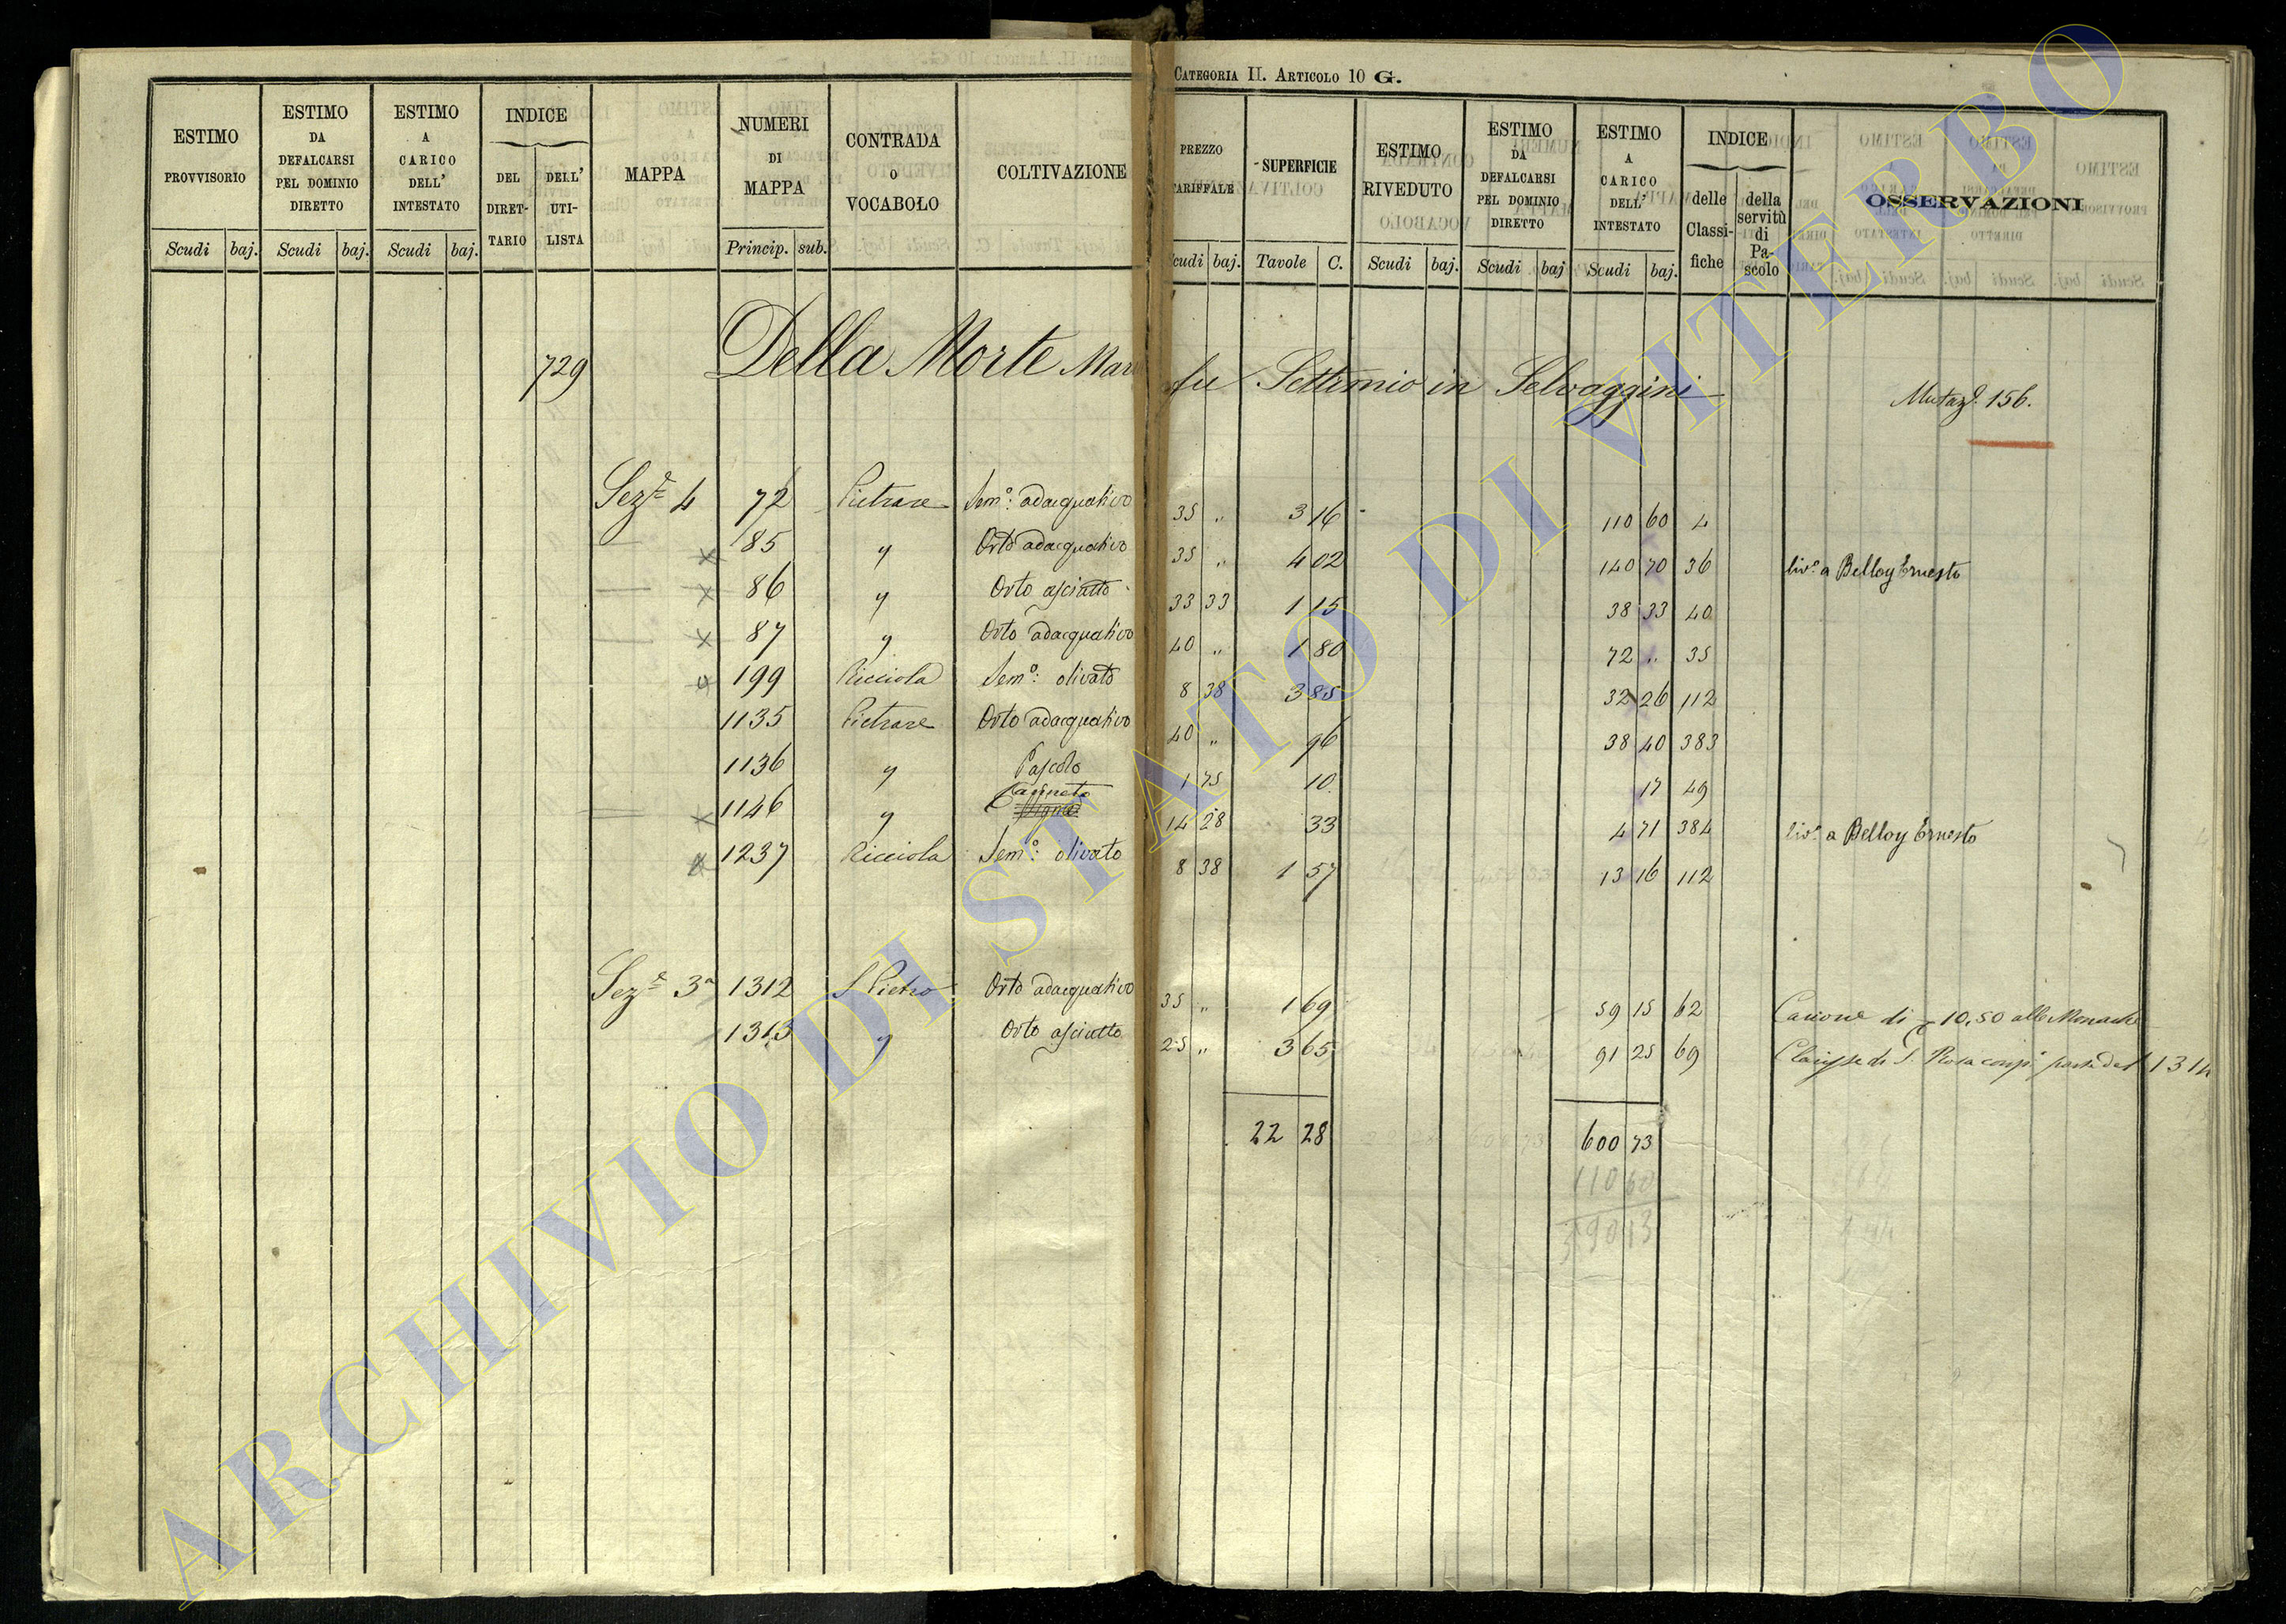 CATEGORIA II. ARTICOLO 10 G.
ESTIMO PROVVISORIO
Scudi baj.
ESTIMO DA DEFALCARSI PEL DOMINIO DIRETTO
Scudi baj.
ESTIMO A CARICO DELL' INTESTATO
Scudi baj.
INDICE
DEL DIRET-TARIO
DELL' UTI-LISTA
MAPPA
NUMERI DI MAPPA
Princip. sub.
CONTRADA O VOCABOLO
COLTIVAZIONE
PREZZO TARIFFALE
Scudi baj.
SUPERFICIE
Tavole C.
ESTIMO RIVEDUTO
Scudi baj.
ESTIMO DA DEFALCARSI PEL DOMINIO DIRETTO
Scudi baj
ESTIMO A CARICO DELL' INTESTATO
Scudi baj.
INDICE
delle Classi-fiche
della servitù di Pa-scolo
OSSERVAZIONI
729 Della Morte Mar fu Settimio in Selvaggini
Mutaz.e 156.
Sez.e 4 72 Pietrare Sem.o: adacquativo 35 " 3 16 110 60 4
85 " Orto adacquativo 35 " 4 02 140 70 36 liv.o a Belloy Ernesto
86 " Orto asciutto 33 33 1 15 38 33 40
87 " Orto adacquativo 40 " 1 80 72 " 35
199 Ricciola Sem.o: olivato 8 38 3 85 32 26 112
1135 Pietrare Orto adacquativo 40 " 96 38 40 383
1136 " Pascolo 1 75 10 17 49
1146 " Canneto Vigna 14 28 33 4 71 384 liv.o a Belloy Ernesto
1237 Ricciola Sem.o: olivato 8 38 1 57 13 16 112
Sez.e 3a 1312 S Pietro Orto adacquativo 35 " 1 69 59 15 62 Canone di 10,50 alle Monache
1313 " Orto asciutto 25 " 3 65 91 25 69 Clarisse di S. Rosa parte del 1314
22 28 600 73
110 60
390 13
ARCHIVIO DI STATO DI VITERBO